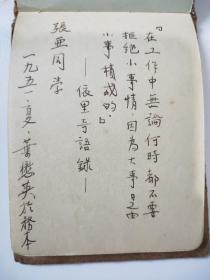 『在工作中無論何時都不要
拒絕小事情,因為大事是由
小事積成的。』
——依里奇語錄——
張亜同学
一九五一.夏.葉懋英於